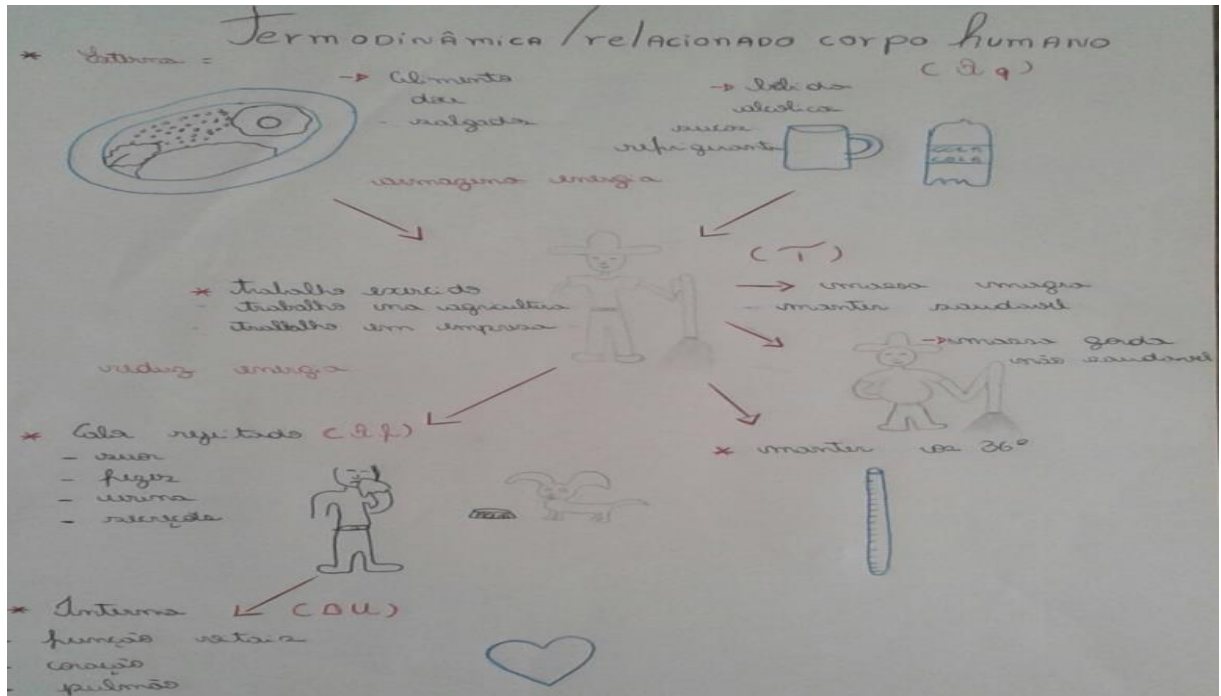 Termodinâmica / relacionado corpo humano
* Externa =
(Qq)
→ Alimento
doce
- salgados
→ bebida
alcolica
sucos
refrigerante
COCA
COLA
armagena energia
(T)
* trabalho exercido
- trabalho na agricultura
- trabalho em empresa
→ massa magra
- manter saudavel
→ massa gorda
não saudavel
reduz energia
* Calor rejeitado (Qf)
- suor
- fezes
- urina
- secreção
* manter os 36°
* Interna (ΔU)
- função vitais
- coração
- pulmão